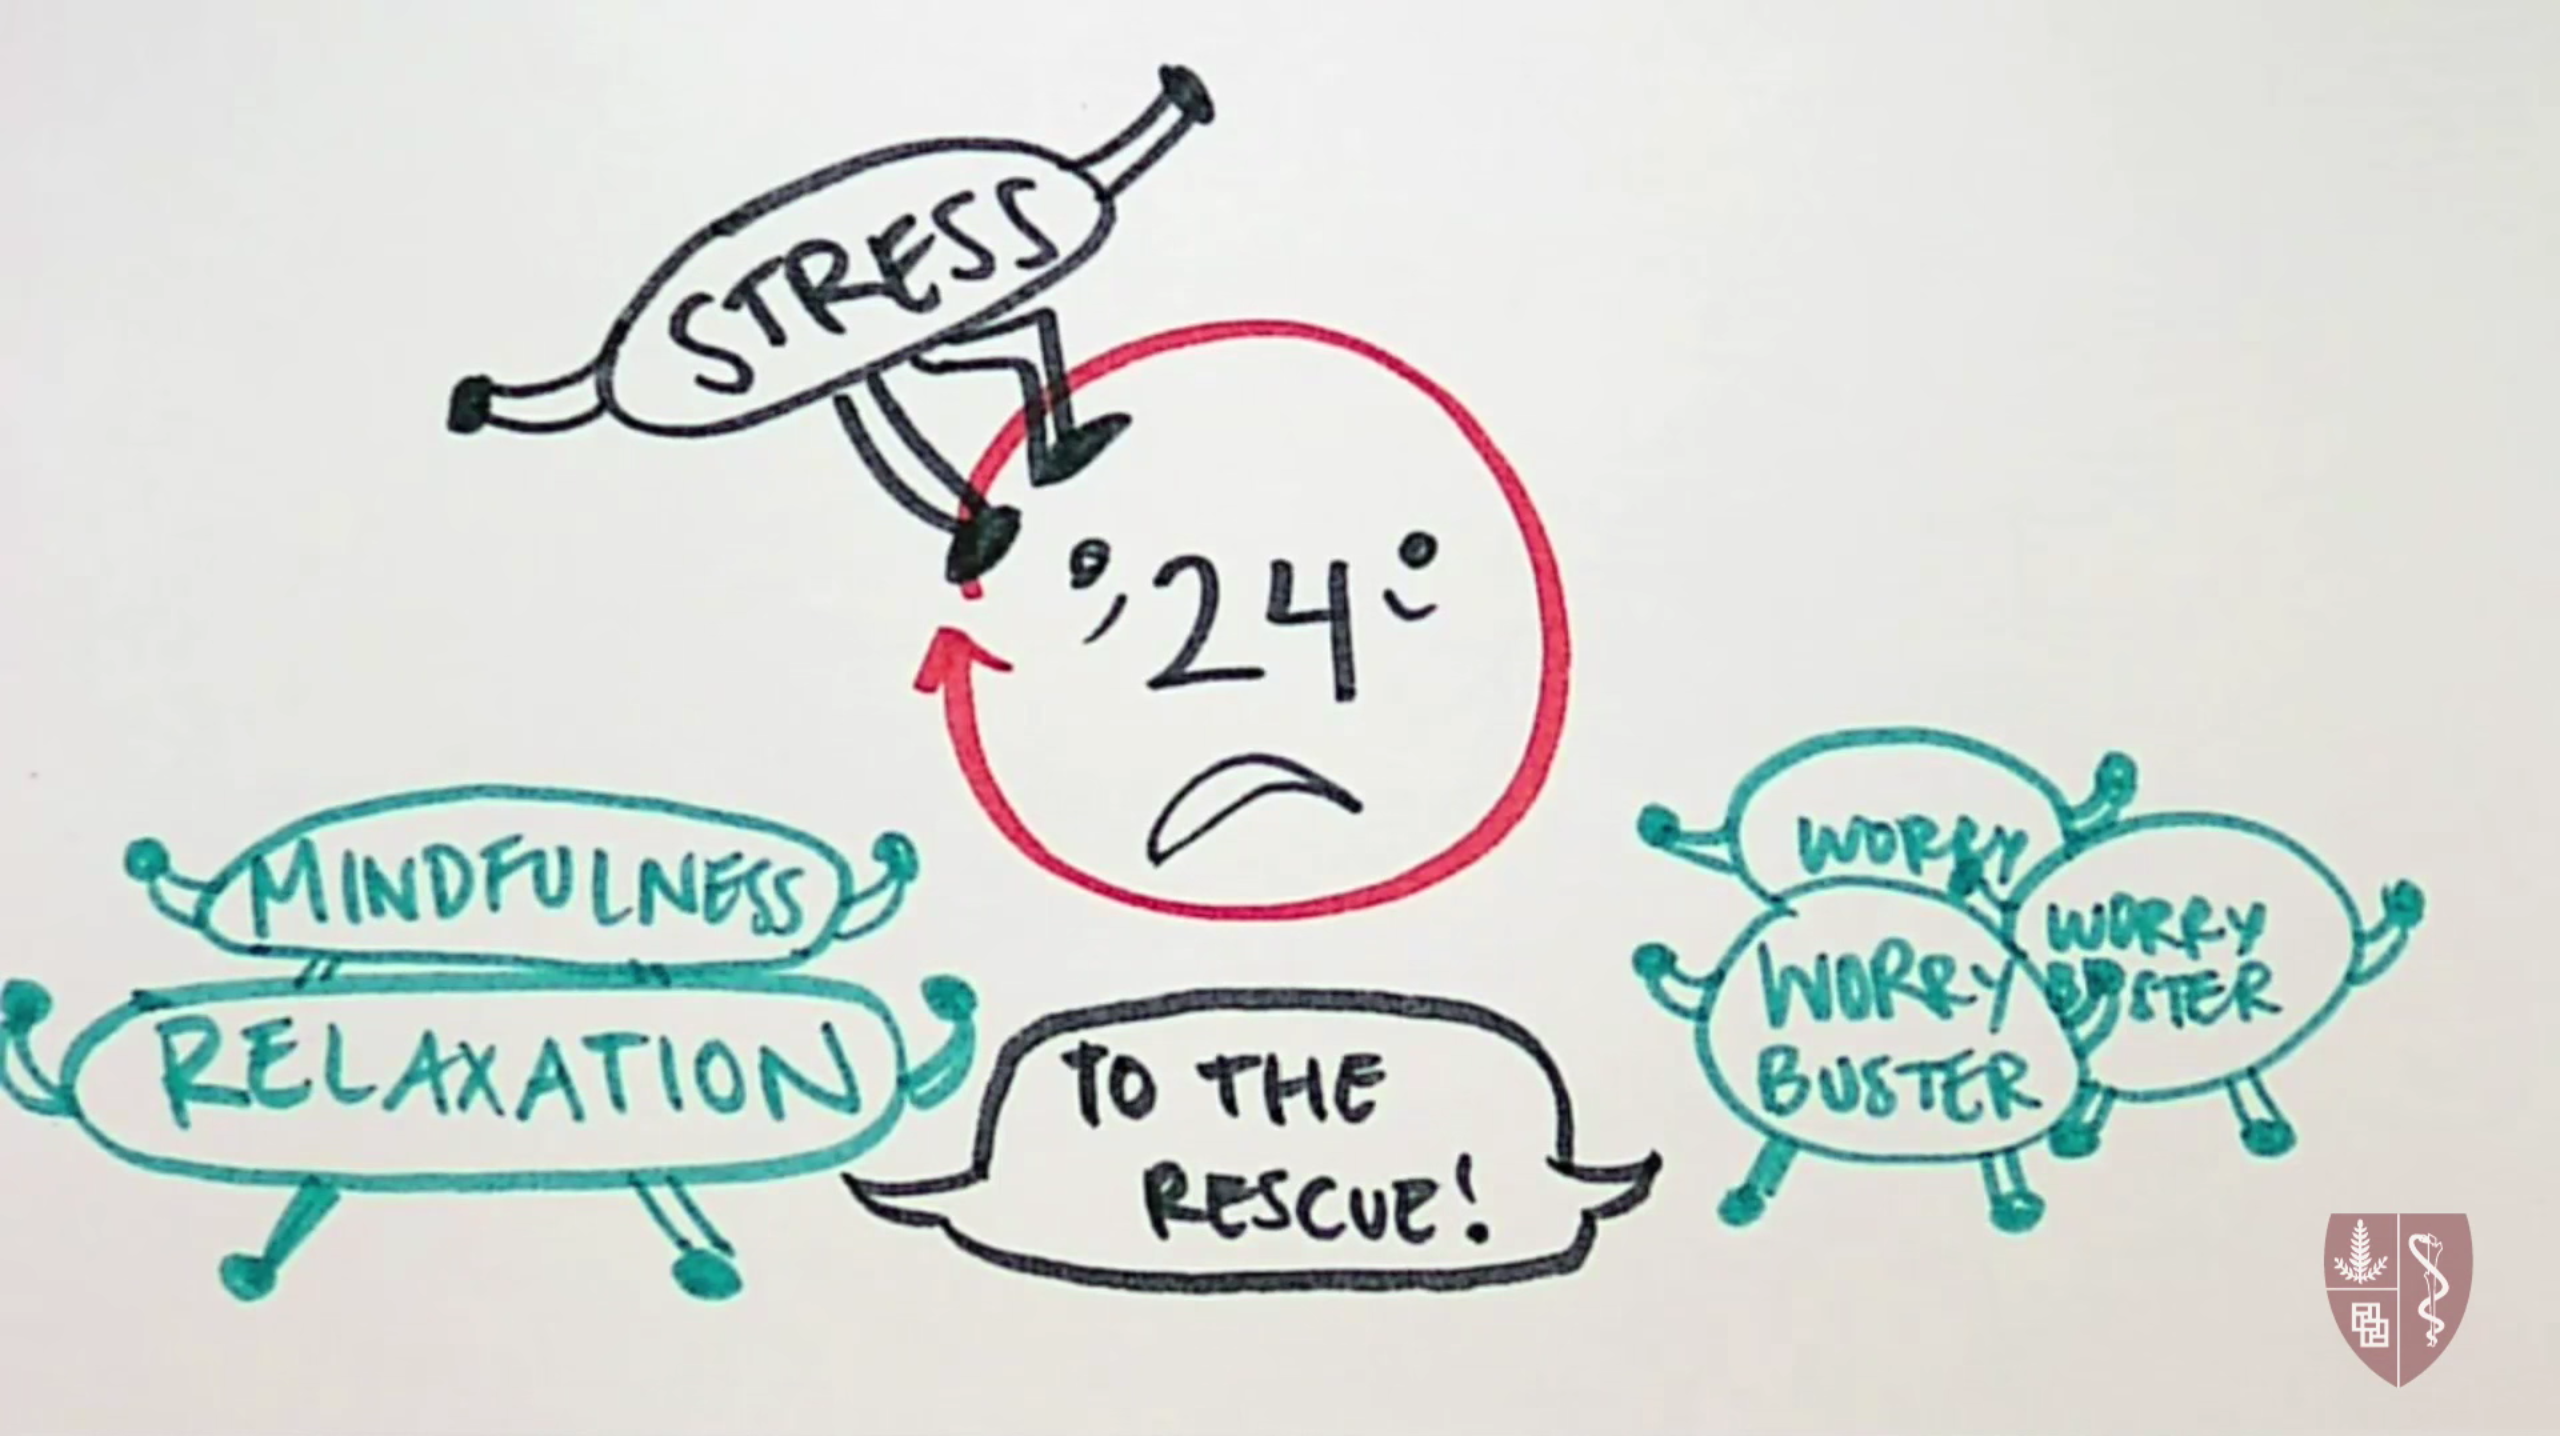 STRESS
24
MINDFULNESS
RELAXATION
TO THE
RESCUE!
WORRY
WORRY
BUSTER
WORRY
BUSTER